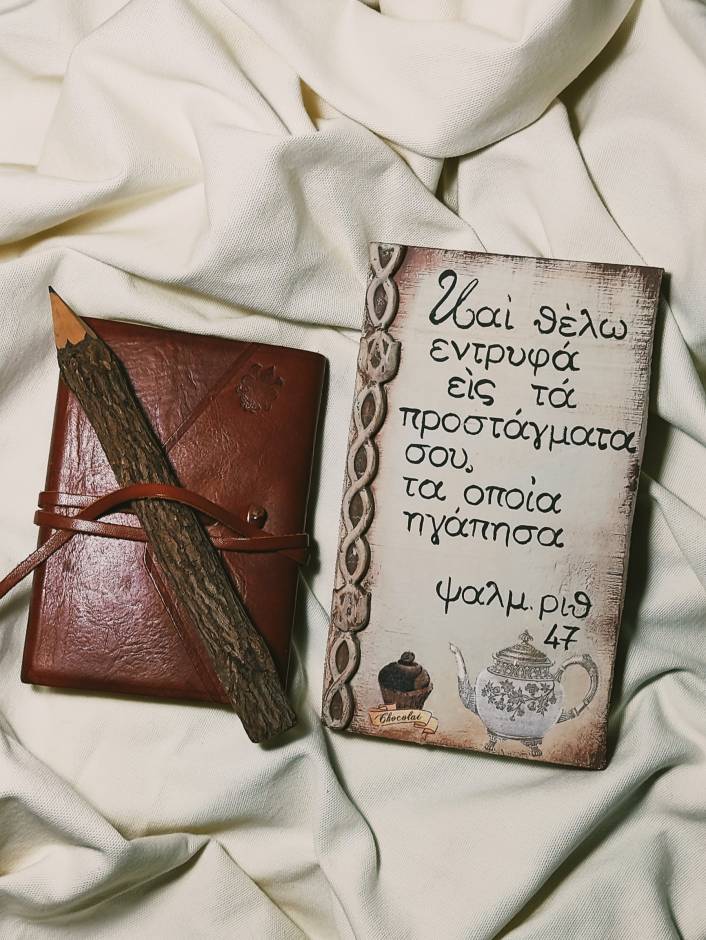 Καὶ θέλω
εντρυφά
εὶς τά
προστάγματα
σου,
τα οποία
ηγάπησα
ψαλμ. ριθ
47
Chocolat